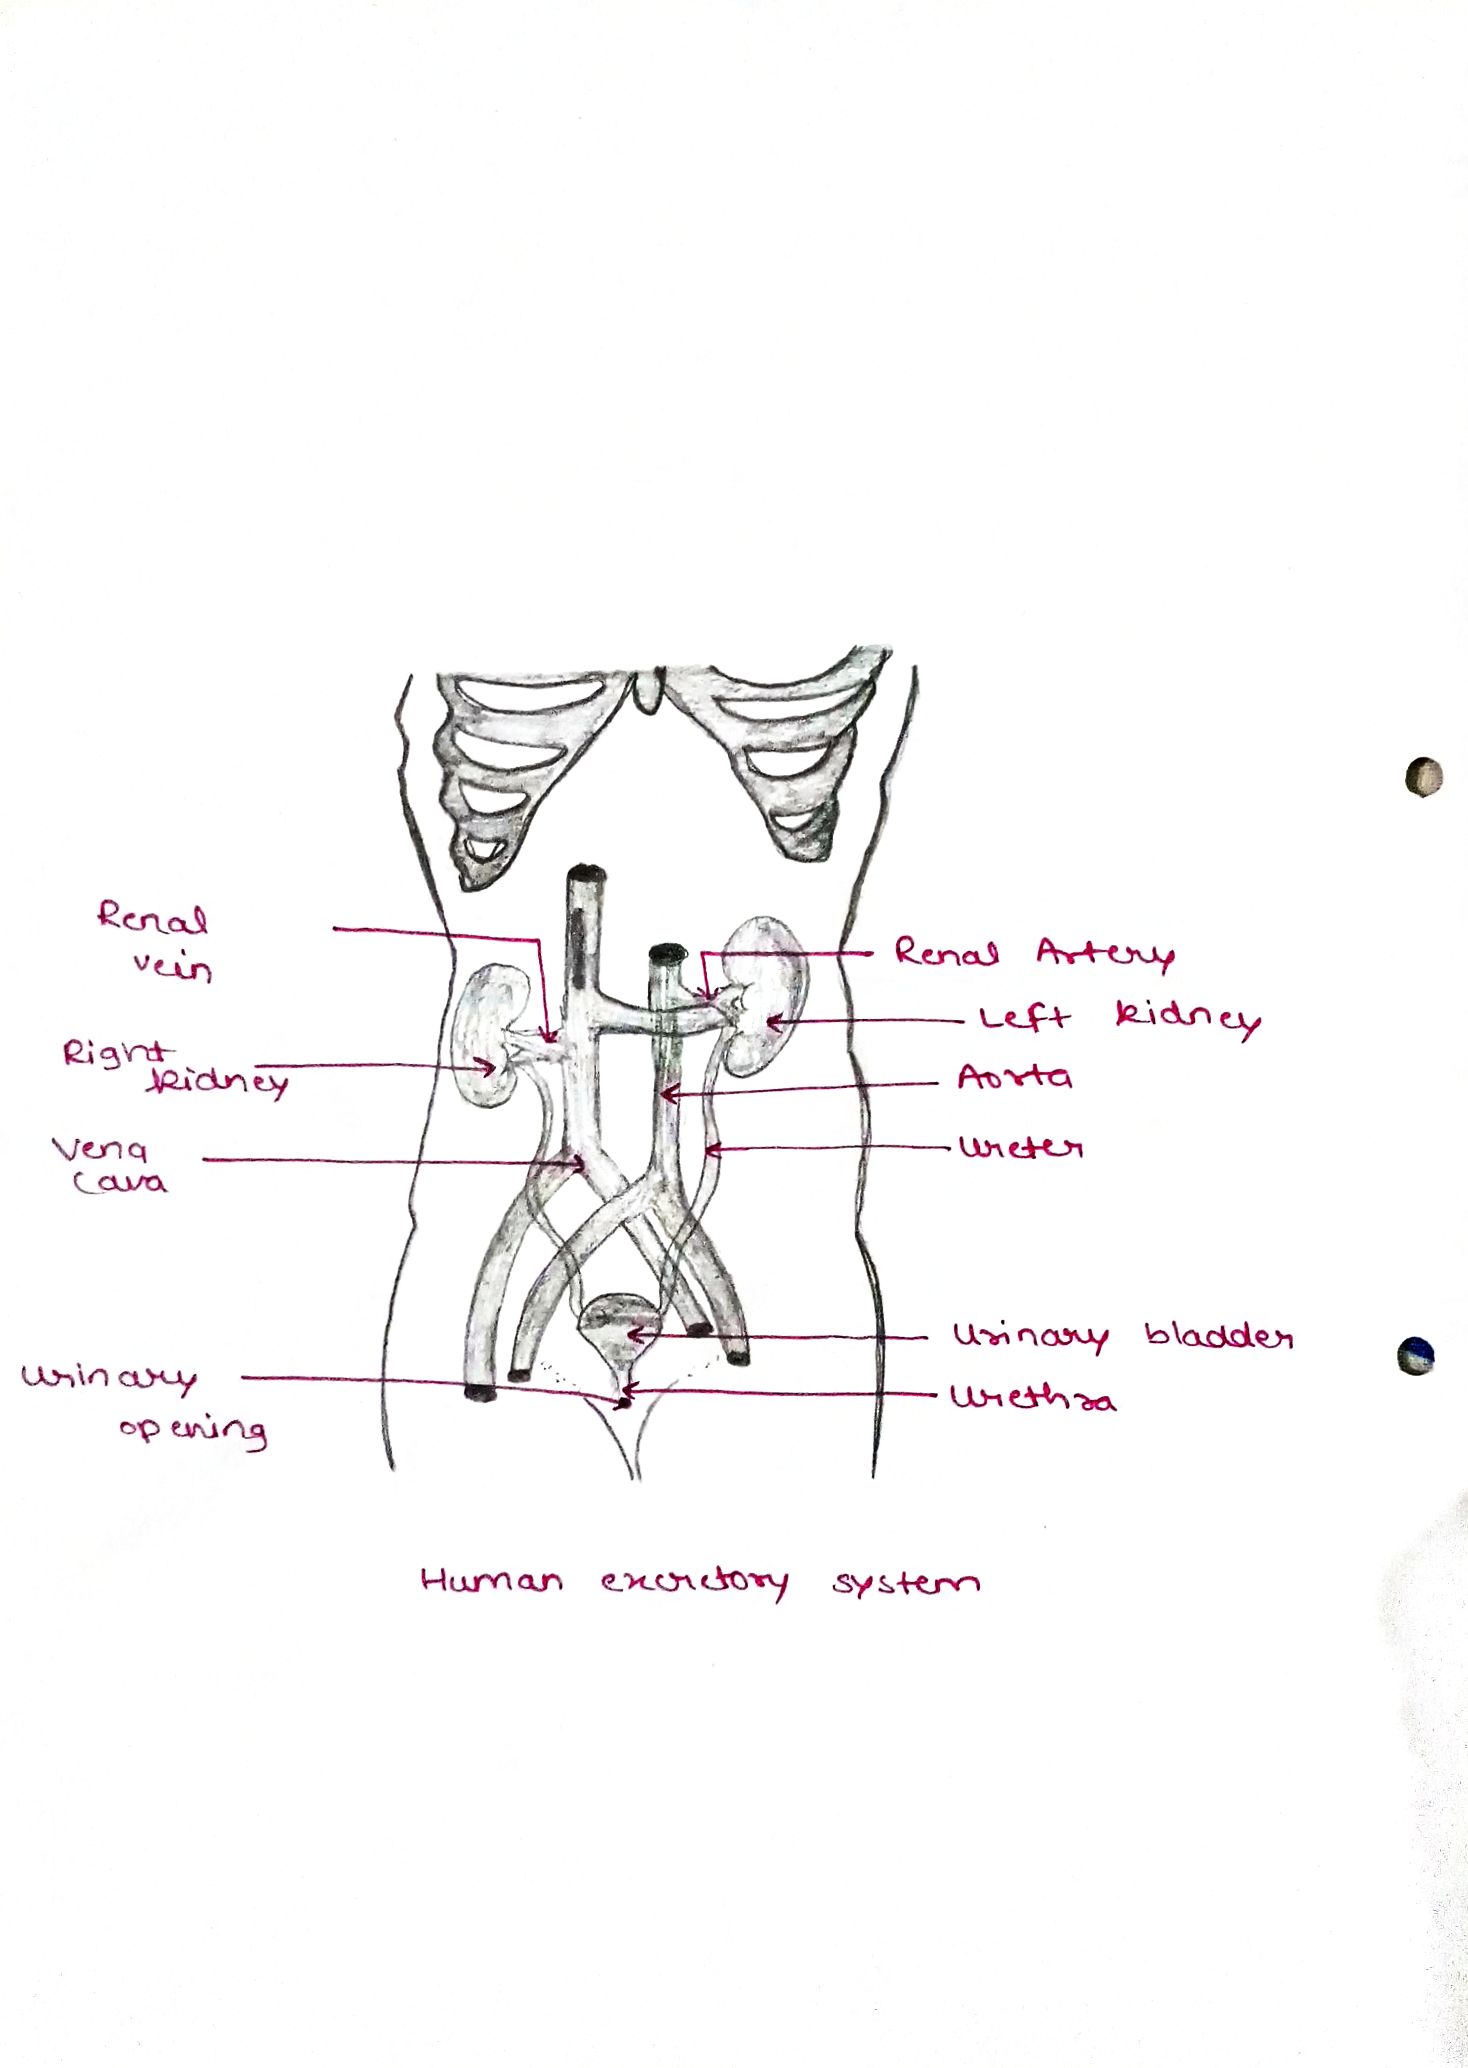 Renal
vein
Renal Artery
Left kidney
Right
kidney
Aorta
Vena
Cava
Ureter
Urinary bladder
Urinary
opening
Urethra
Human excretory system